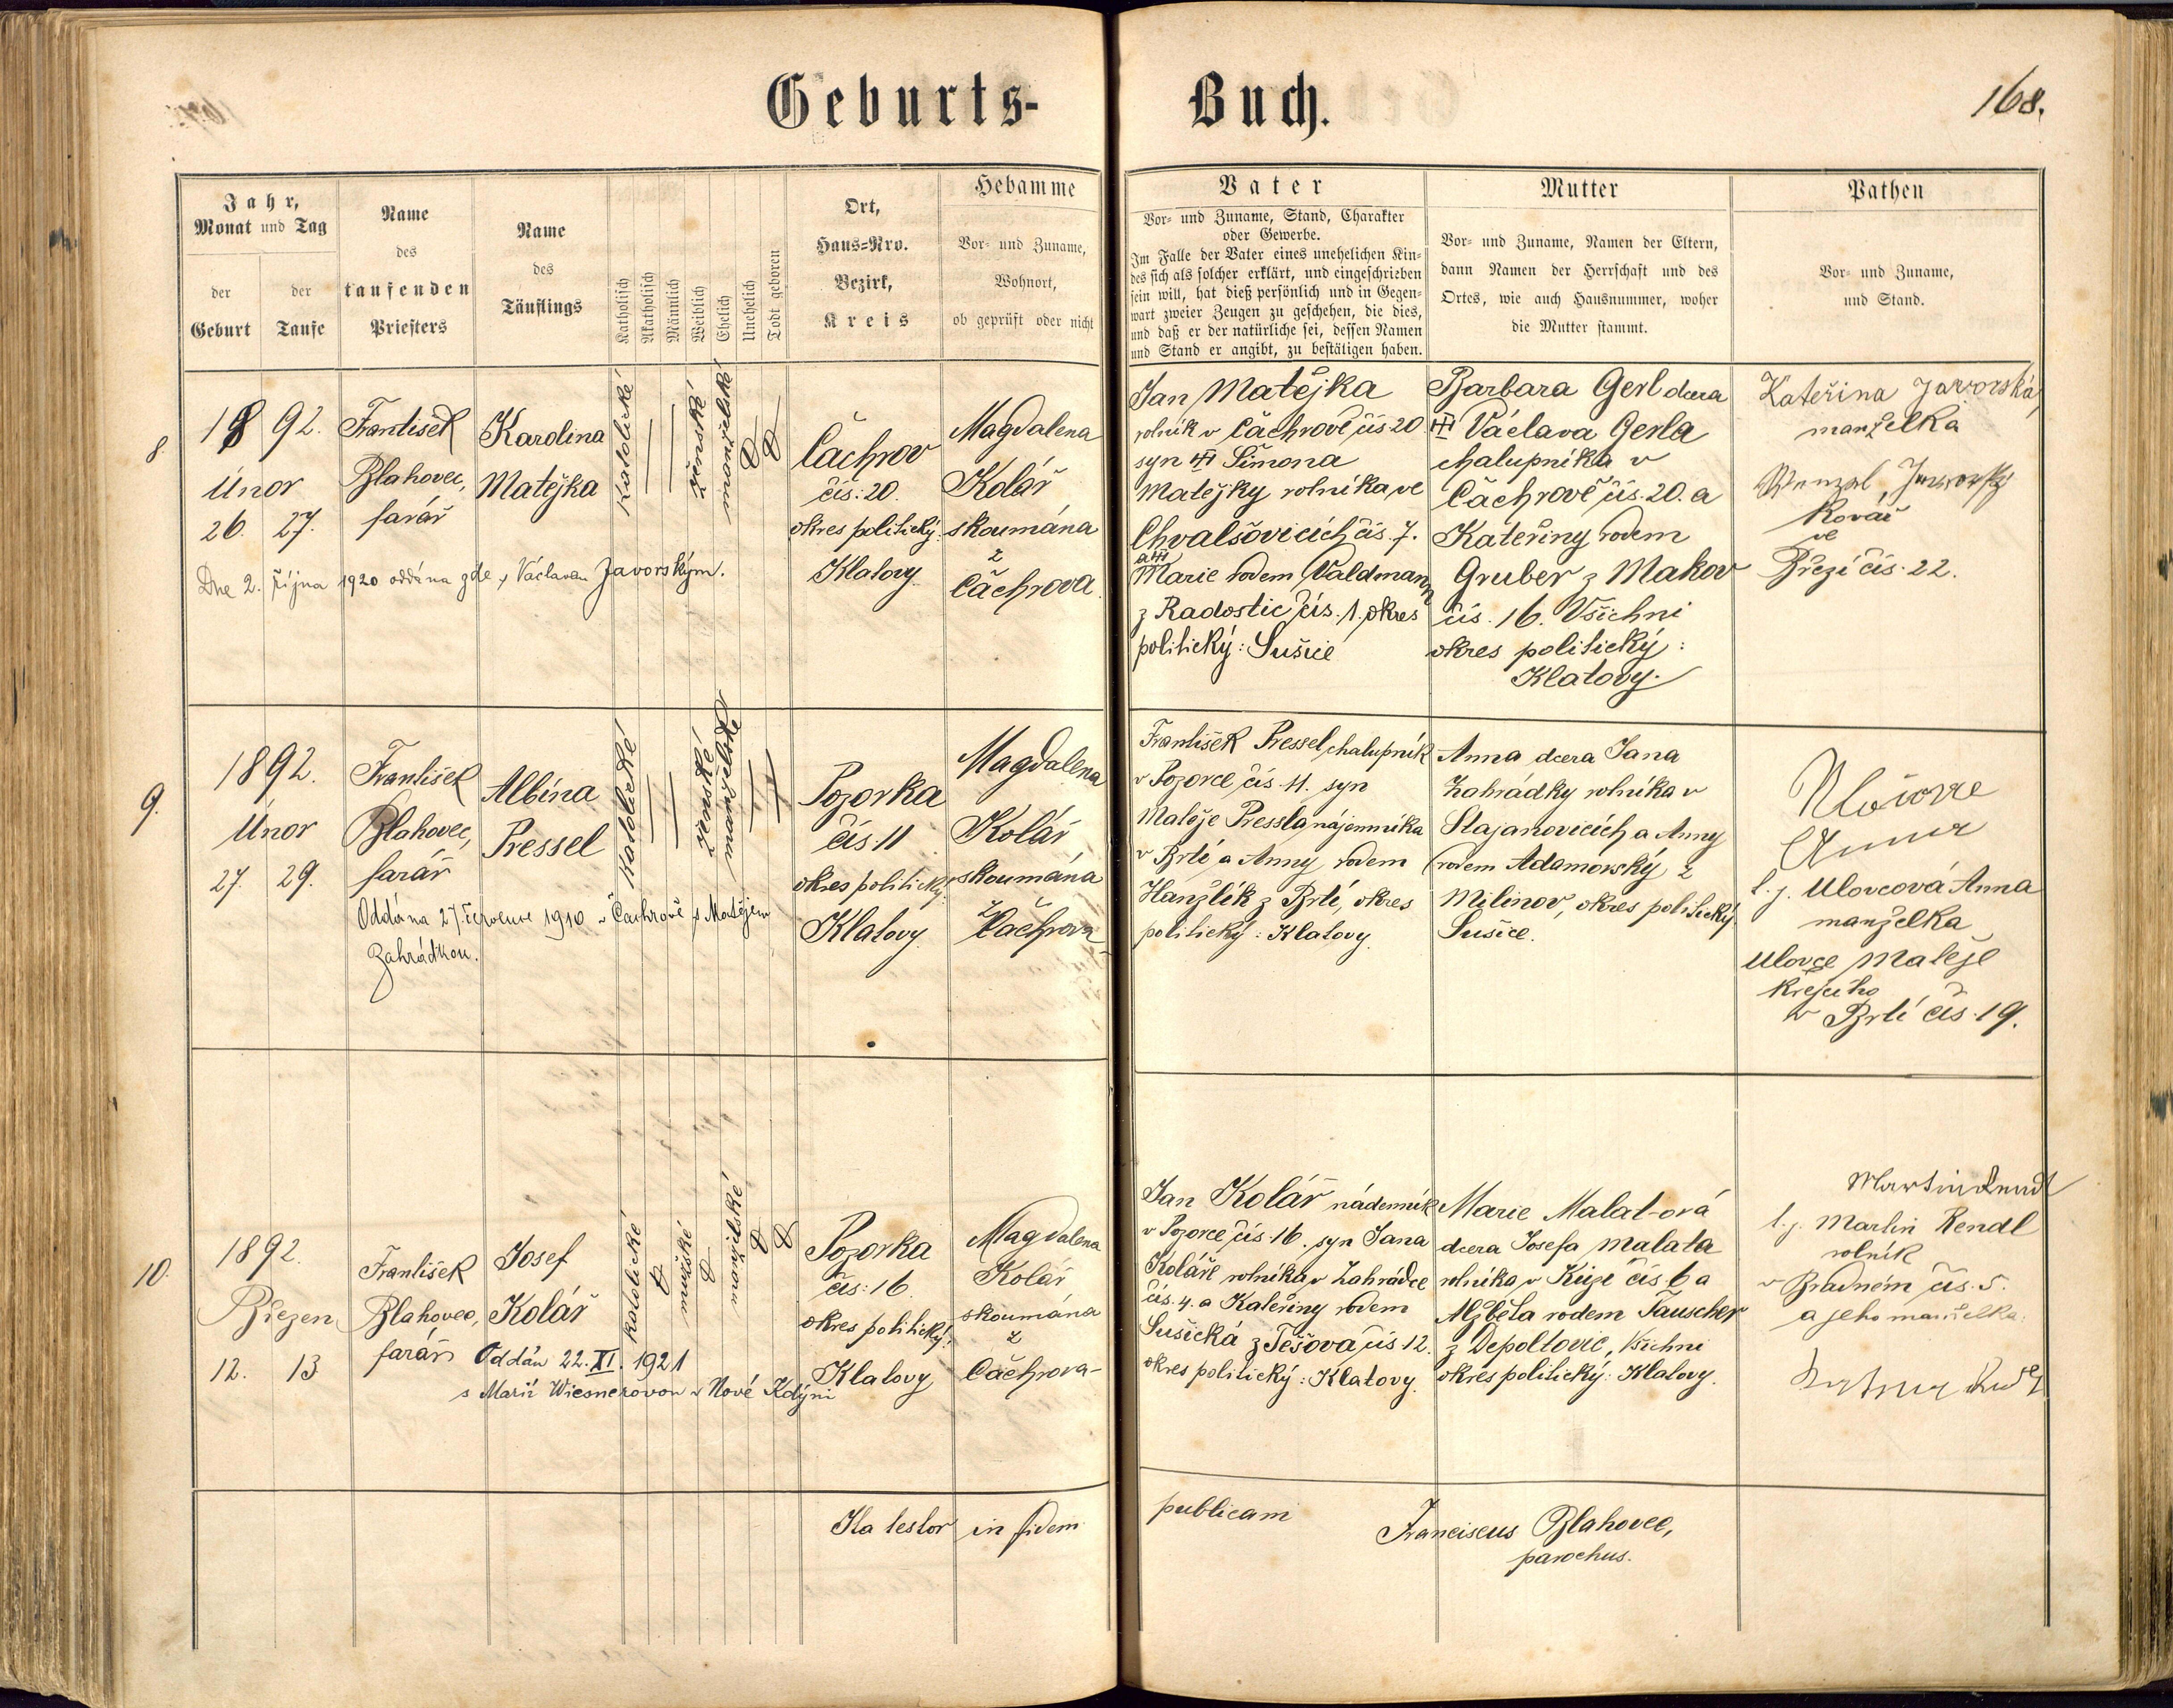 Geburts- Buch.
168.
Jahr,
Monat und Tag
der Geburt
der Taufe
Name
des
taufenden
Priesters
Name
des
Täuflings
Katholisch
Akatholisch
Männlich
Weiblich
Ehelich
Unehelich
Todt geboren
Ort,
Haus-Nro.
Bezirk,
Kreis
Hebamme
Vor- und Zuname,
Wohnort,
ob geprüft oder nicht
Vater
Vor- und Zuname, Stand, Charakter
oder Gewerbe.
Im Falle der Vater eines unehelichen Kin-
des sich als solcher erklärt, und eingeschrieben
sein will, hat dieß persönlich und in Gegen-
wart zweier Zeugen zu geschehen, die dies,
und daß er der natürliche sei, dessen Namen
und Stand er angibt, zu bestätigen haben.
Mutter
Vor- und Zuname, Namen der Eltern,
dann Namen der Herrschaft und des
Ortes, wie auch Hausnummer, woher
die Mutter stammt.
Pathen
Vor- und Zuname,
und Stand.
8.
1892.
Únor
26. 27.
František
Blahovec,
farář
Karolina
Matějka
Katolické
ženské
manželské
Čachrov
čís: 20.
okres politický:
Klatovy
Magdalena
Kolář
skoumána
z
Čachrova.
Dne 2. října 1920 oddána zde s Václavem Javorským.
Jan Matějka
rolník v Čachrově čís 20
syn Šimona
Matějky rolníka ve
Chvalšovicích čís. 7.
a
Marie rodem Valdmann
z Radostic čís. 1. okres
politický: Sušice
Barbara Gerl dcera
Václava Gerla
chalupníka v
Čachrově čís. 20. a
Kateřiny rodem
Gruber z Makov
čís. 16. Všichni
okres politický:
Klatovy.
Kateřina Javorská,
manželka
Wenzel Jaworský
Kovář
ve
Březí čís. 22.
9.
1892.
Únor
27. 29.
František
Blahovec,
farář
Albína
Pressel
Katolické
ženské
manželské
Pozorka
čís: 11
okres politický:
Klatovy
Magdalena
Kolář
skoumána
z
Čachrova
Oddána 27. července 1910 v Čachrově s Matějem
Zahrádkou.
František Pressel, chalupník
v Pozorce čís. 11. syn
Matěje Pressla nájemníka
v Brtí a Anny rodem
Hanžlík z Brtí, okres
politický: Klatovy.
Anna dcera Jana
Zahrádky rolníka v
Stajanovicích a Anny
rodem Adamovský z
Milínov, okres politický
Sušice.
Anna
l. j. Ulovcová Anna
manželka
Ulovce Matěje
krejčího
v Brtí čís. 19.
10.
1892.
Březen
12. 13
František
Blahovec,
farář
Josef
Kolář
Katolické
mužské
manželské
Pozorka
čís: 16.
okres politický:
Klatovy
Magdalena
Kolář
skoumána
z
Čachrova
Oddán 22. XI. 1921
s Marií Wiesnerovou v Nové Kdýni
Jan Kolář nádenník
v Pozorce čís. 16. syn Jana
Koláře rolníka v Zahrádce
čís. 4. a Kateřiny rodem
Sušická z Tešova čís 12.
okres politický: Klatovy.
Marie Malat-ová
dcera Josefa Malata
rolníka v Kůzi čís. 6 a
Alžběta rodem Tauscher
z Depoltovic, Všichni
okres politický: Klatovy.
Martin Rendl
l. j. Martin Rendl
rolník
v Bradném čís. 5.
a jeho manželka.
Ita testor in fidem publicam
Franciscus Blahovec,
parochus.